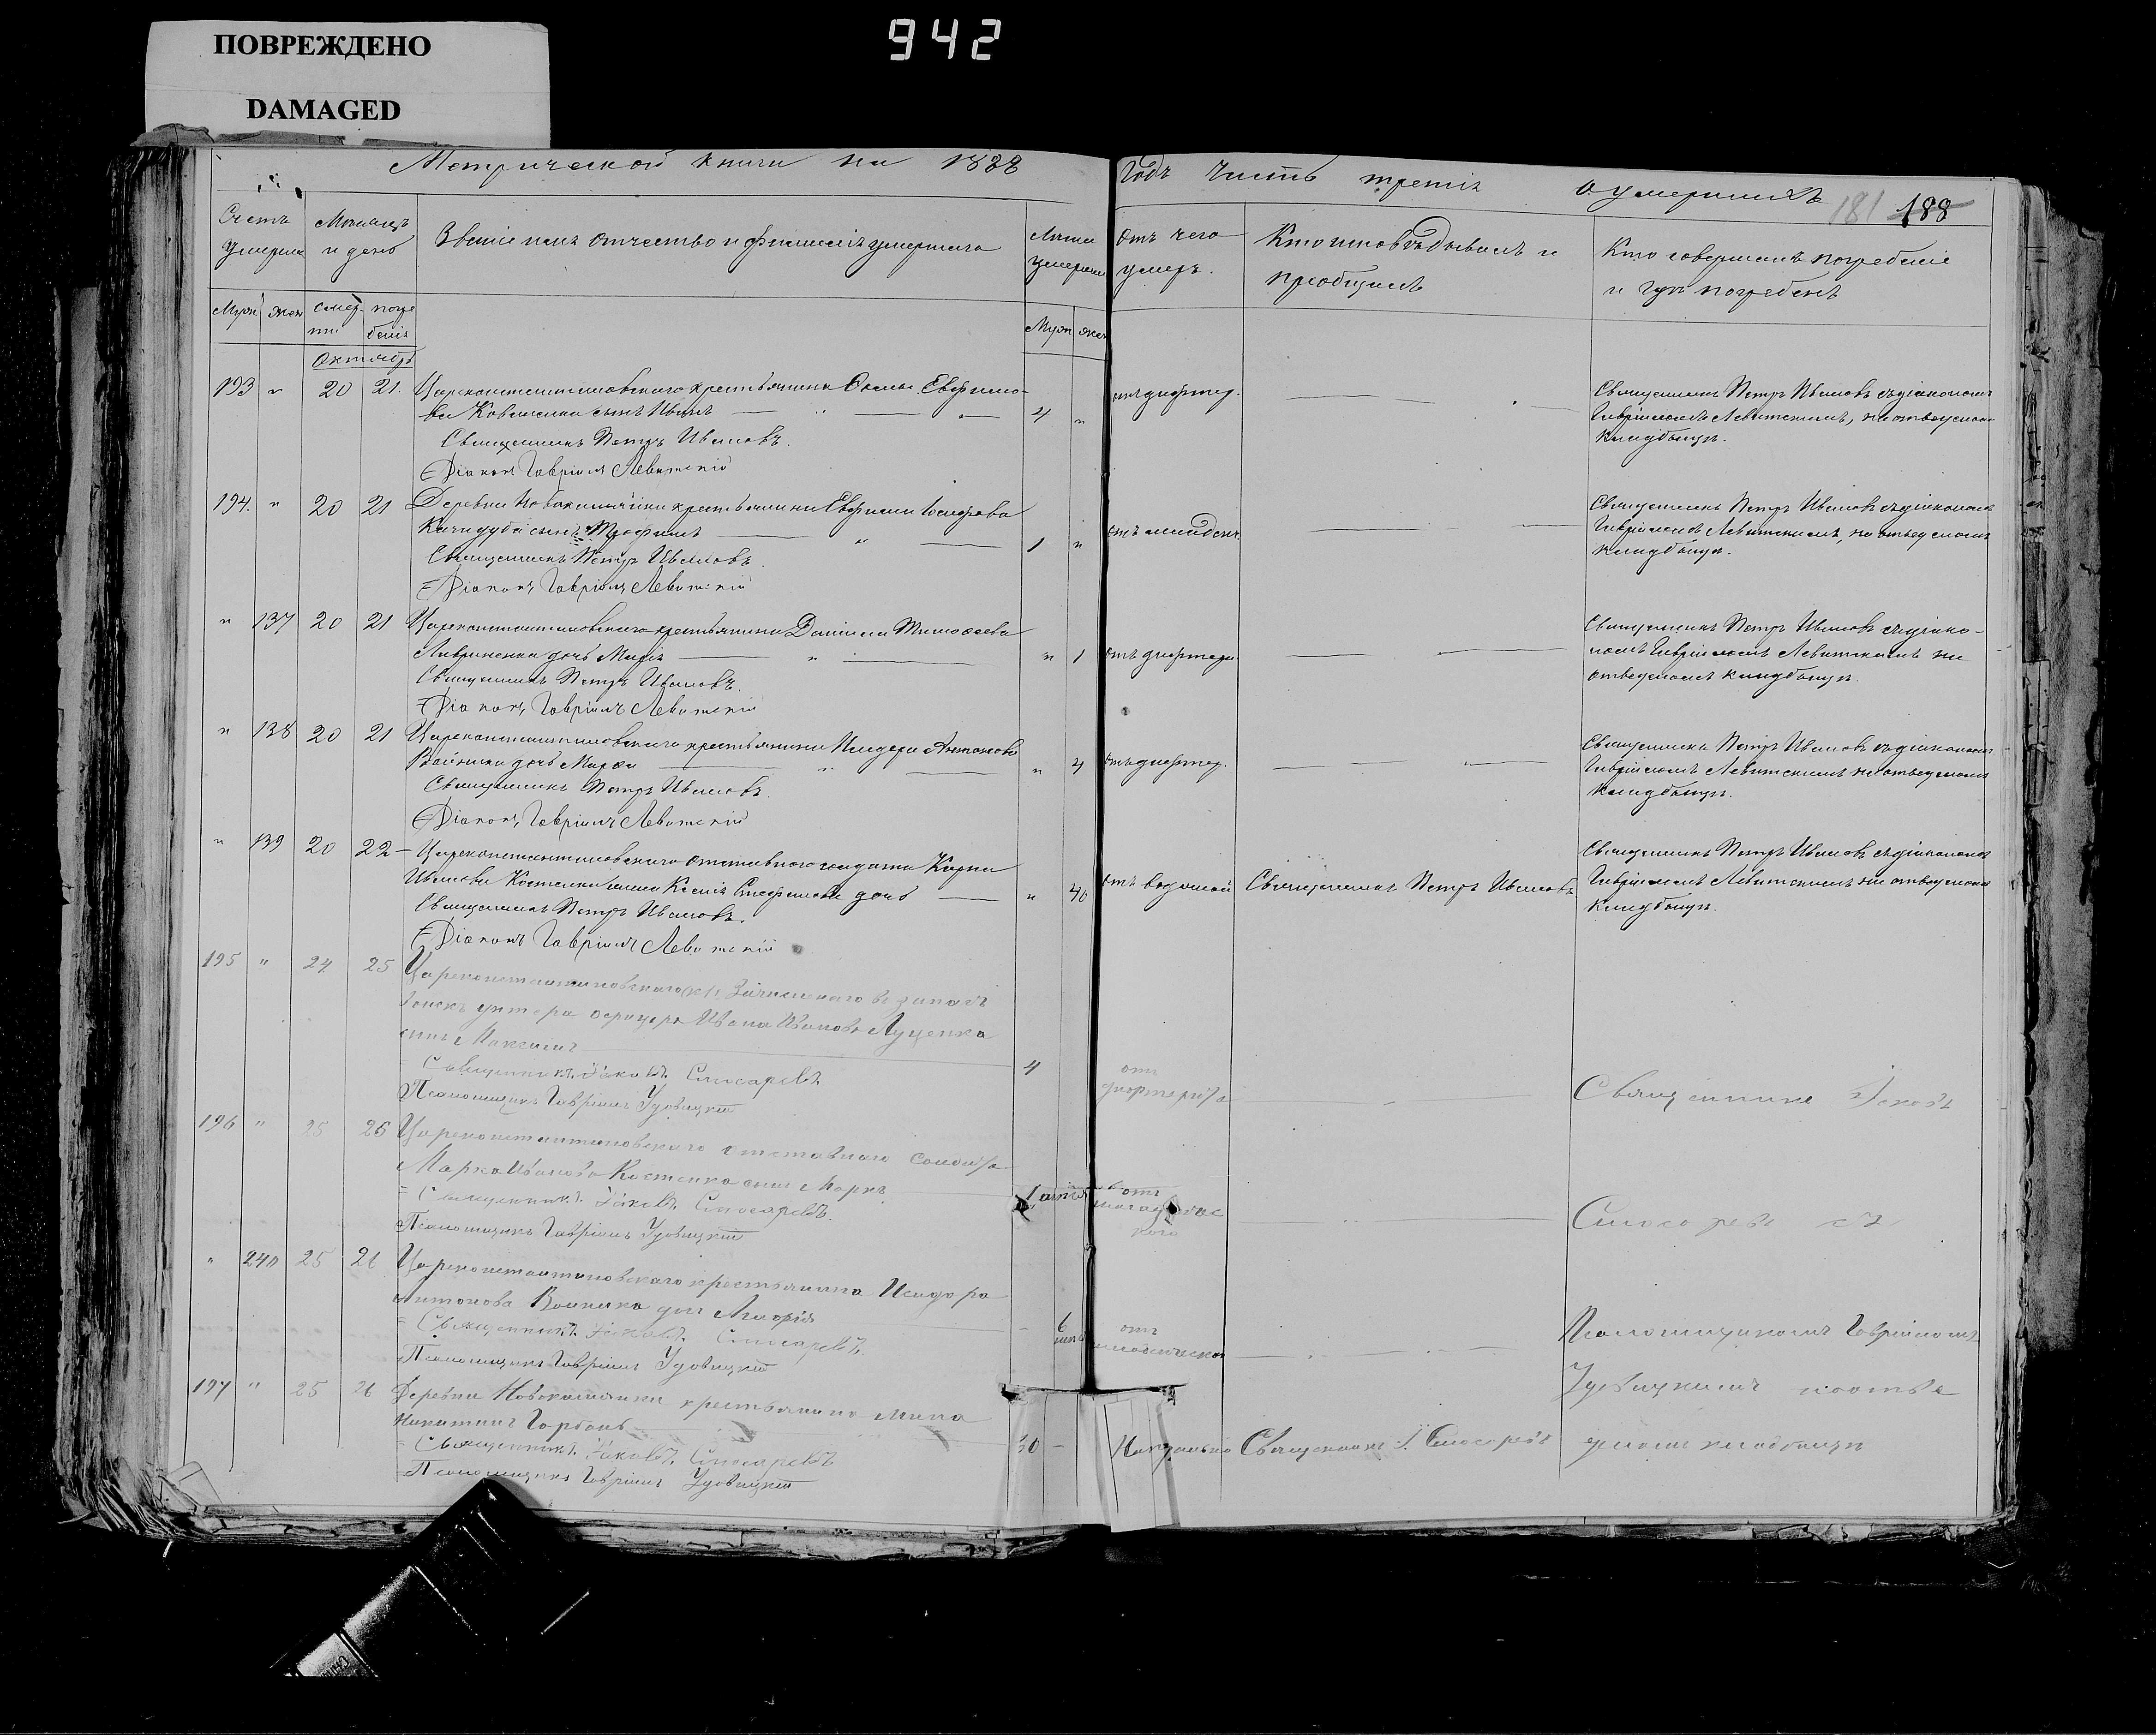 ПОВРЕЖДЕНО
DAMAGED
942
Метрической книги на 1888
годъ Часть третія о умершихъ
181 188
Счетъ умерш
Мѣсяцъ и день
Званіе имя отчество и фамилія умершаго
Лѣта умерша
отъ чего умеръ.
Кто исповѣдывалъ и пріобщалъ
Кто совершалъ погребеніе и гдѣ погребенъ
Муж жен смер-ти погре бенія
Муж жен
Октябрь
193 " 20 21. Цареконстантиновскаго крестьянина Евфимо-
ва Коваленка сынъ Иванъ — " — 4 " отъ дифтер.
Священникъ Петръ Ивановъ.
Діаконъ Гавріилъ Левитскій
Священникъ Петръ Ивановъ съ діакономъ
Гавріиломъ Левитскимъ, на отведеномъ
кладбищѣ.
194. " 20 21 Деревни Новокамянки крестьянина Евфимія Іосифова
Качидуба сынъ Трофимъ — " — 1 " отъ младен.
Священникъ Петръ Ивановъ.
Діаконъ Гавріилъ Левитскій
Священникъ Петръ Ивановъ съ діакономъ
Гавріиломъ Левитскимъ, на отведеномъ
кладбищѣ.
" 137 20 21 Цареконстантиновскаго крестьянина Даніила Тимофеева
Лавриненка дочь Марія — " — " 1 отъ дифтери
Священникъ Петръ Ивановъ.
Діаконъ Гавріилъ Левитскій
Священникъ Петръ Ивановъ съ діако-
номъ Гавріиломъ Левитскимъ на
отведеномъ кладбищѣ.
" 138 20 21 Цареконстантиновскаго крестьянина Исидора Антонова
Войника дочь Марфа — " — " 4 отъ дифтер.
Священникъ Петръ Ивановъ.
Діаконъ Гавріилъ Левитскій
Священникъ Петръ Ивановъ съ діакономъ
Гавріиломъ Левитскимъ на отведеномъ
кладбищѣ.
" 139 20 22 Цареконстантиновскаго отставного солдата Карпа
Иванова Костенка жена Ксенія Стефанова дочь — " 40 отъ водяной Священникъ Петръ Ивановъ.
Священникъ Петръ Ивановъ.
Діаконъ Гавріилъ Левитскій
Священникъ Петръ Ивановъ съ діакономъ
Гавріиломъ Левитскимъ на отведеномъ
кладбищѣ.
195 " 24 25 Цареконстантиновскаго въ запасъ
унтера офицера Ивана Иванова Луценко
сынъ Максимъ 4 отъ дифтерита
Священникъ Іаковъ Слюсаревъ
Псаломщикъ Гавріилъ Удовицкій
Священникъ Іаковъ
196 " 25 26 Цареконстантиновскаго отставнаго солдата
Марка Иванова Костенка сынъ Маркъ
Священникъ Іаковъ Слюсаревъ.
Псаломщикъ Гавріилъ Удовицкій
Слюсаревъ съ
" 240 25 26 Цареконстантиновскаго крестьянина Исидора
Антонова Войника дочь Марфія 6 отъ
Священникъ Іаковъ Слюсаревъ
Псаломщикъ Гавріилъ Удовицкій
Псаломщикомъ Гавріиломъ
Удовицкимъ на отве
197 " 25 26 Деревни Новокамянки крестьянина
Никитинъ Горбань
Священникъ Іаковъ Слюсаревъ
Псаломщикъ Гавріилъ Удовицкій
50 — Священникъ І. Слюсаревъ деномъ кладбищѣ